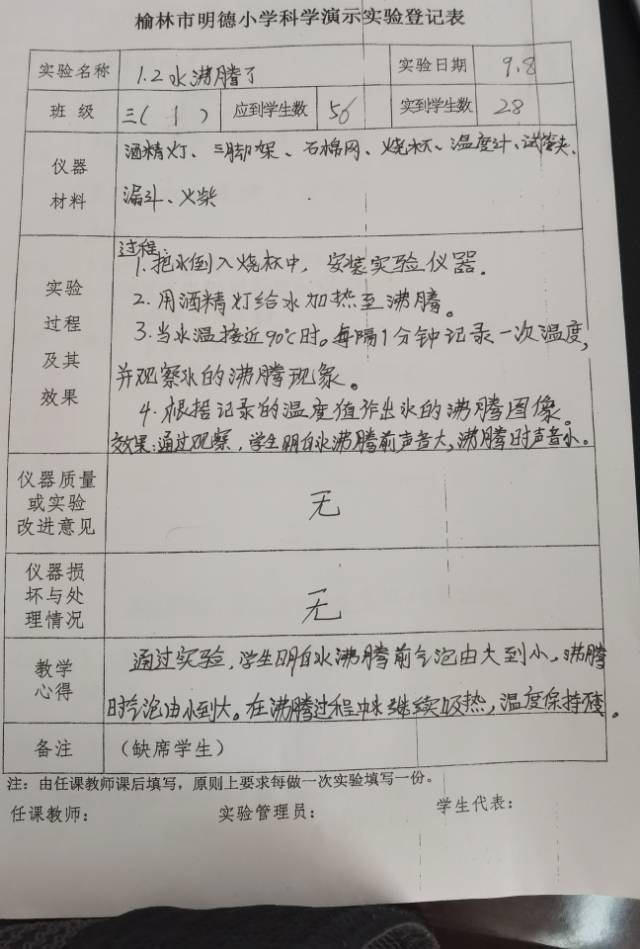 榆林市明德小学科学演示实验登记表
实验名称 1.2水沸腾了 实验日期 9.8
班 级 三( 1 ) 应到学生数 56 实到学生数 28
仪器 材料 酒精灯、三脚架、石棉网、烧杯、温度计、试管夹、
漏斗、火柴
实验 过程 及其 效果 过程:
1. 把水倒入烧杯中, 安装实验仪器.
2. 用酒精灯给水加热至沸腾。
3. 当水温接近90℃时。每隔1分钟记录一次温度,
并观察水的沸腾现象。
4. 根据记录的温度值作出水的沸腾图像。
效果:通过观察, 学生明白水沸腾前声音大,沸腾时声音小。
仪器质量 或实验 改进意见 无
仪器损 坏与处 理情况 无
教学 心得 通过实验, 学生明白水沸腾前气泡由大到小, 沸腾
时气泡由小到大。在沸腾过程中水继续吸热, 温度保持不变.
备注 (缺席学生)
注:由任课教师课后填写,原则上要求每做一次实验填写一份。
任课教师: 实验管理员: 学生代表: